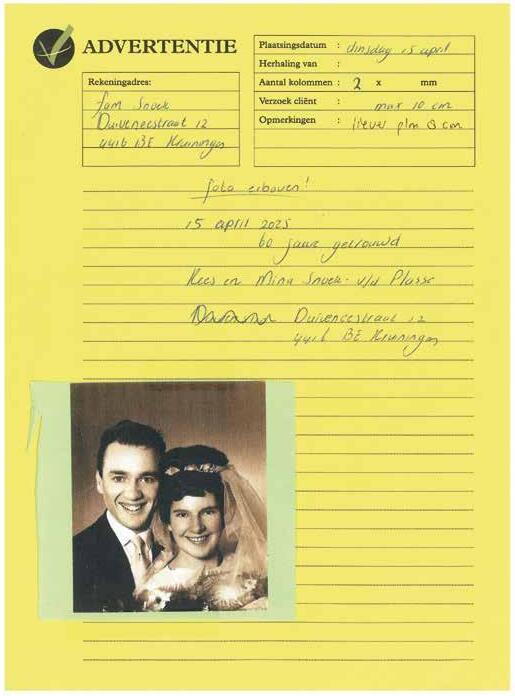 ADVERTENTIE
Plaatsingsdatum : dinsdag 15 april
Herhaling van :
Aantal kolommen : 2 x mm
Verzoek cliënt : max 10 cm
Opmerkingen : liever plm 8 cm
Rekeningadres:
fam Snoek
Duiveneestraat 12
4416 BE Kruiningen
foto erboven!
15 april 2025
60 jaar getrouwd
Kees en Mina Snoek - v/d Plasse
Duiveneestraat 12
4416 BE Kruiningen